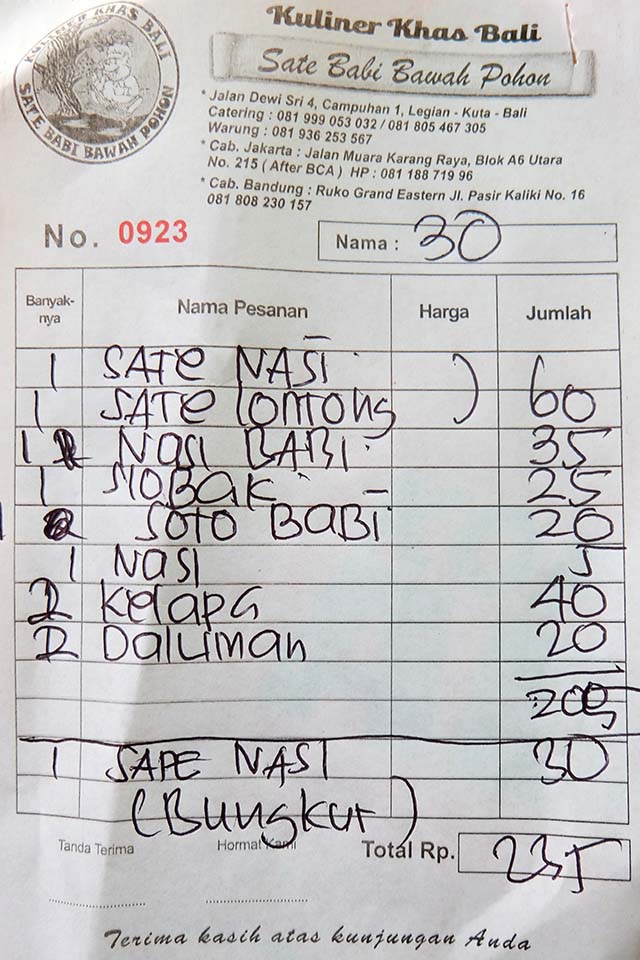 KULINER KHAS BALI
SATE BABI BAWAH POHON
Kuliner Khas Bali
Sate Babi Bawah Pohon
* Jalan Dewi Sri 4, Campuhan 1, Legian - Kuta - Bali
Catering : 081 999 053 032 / 081 805 467 305
Warung : 081 936 253 567
* Cab. Jakarta : Jalan Muara Karang Raya, Blok A6 Utara
No. 215 ( After BCA ) HP : 081 188 719 96
* Cab. Bandung : Ruko Grand Eastern Jl. Pasir Kaliki No. 16
081 808 230 157
No. 0923
Nama : 30
Banyak-nya Nama Pesanan Harga Jumlah
1 SATE NASI
1 SATE lontong ) 60
1 NASI BABI 35
1 MOBAK 25
1 SOTO BABI 20
1 NASI 5
2 Kelapa 40
2 Daluman 20
205
1 SAPE NASI 30
(Bungkur)
Tanda Terima Hormat Kami Total Rp. 235
Terima kasih atas kunjungan Anda